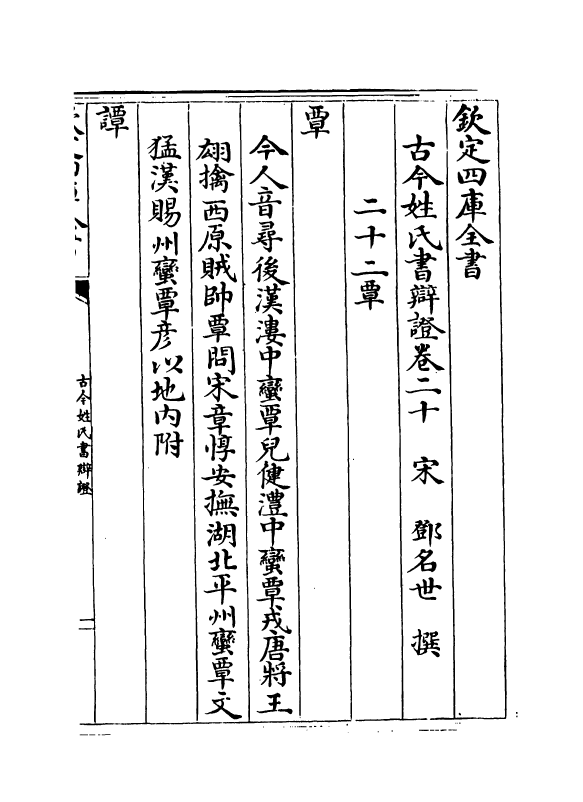 欽定四庫全書
古今姓氏書辯證卷二十　宋　鄧名世　撰
二十二覃
覃
今人音尋後漢漊中蠻覃兒健澧中蠻覃戎唐將王
翃擒西原賊帥覃問宋章惇安撫湖北平州蠻覃文
猛漢賜州蠻覃彦以地内附
譚
古今姓氏書辯證